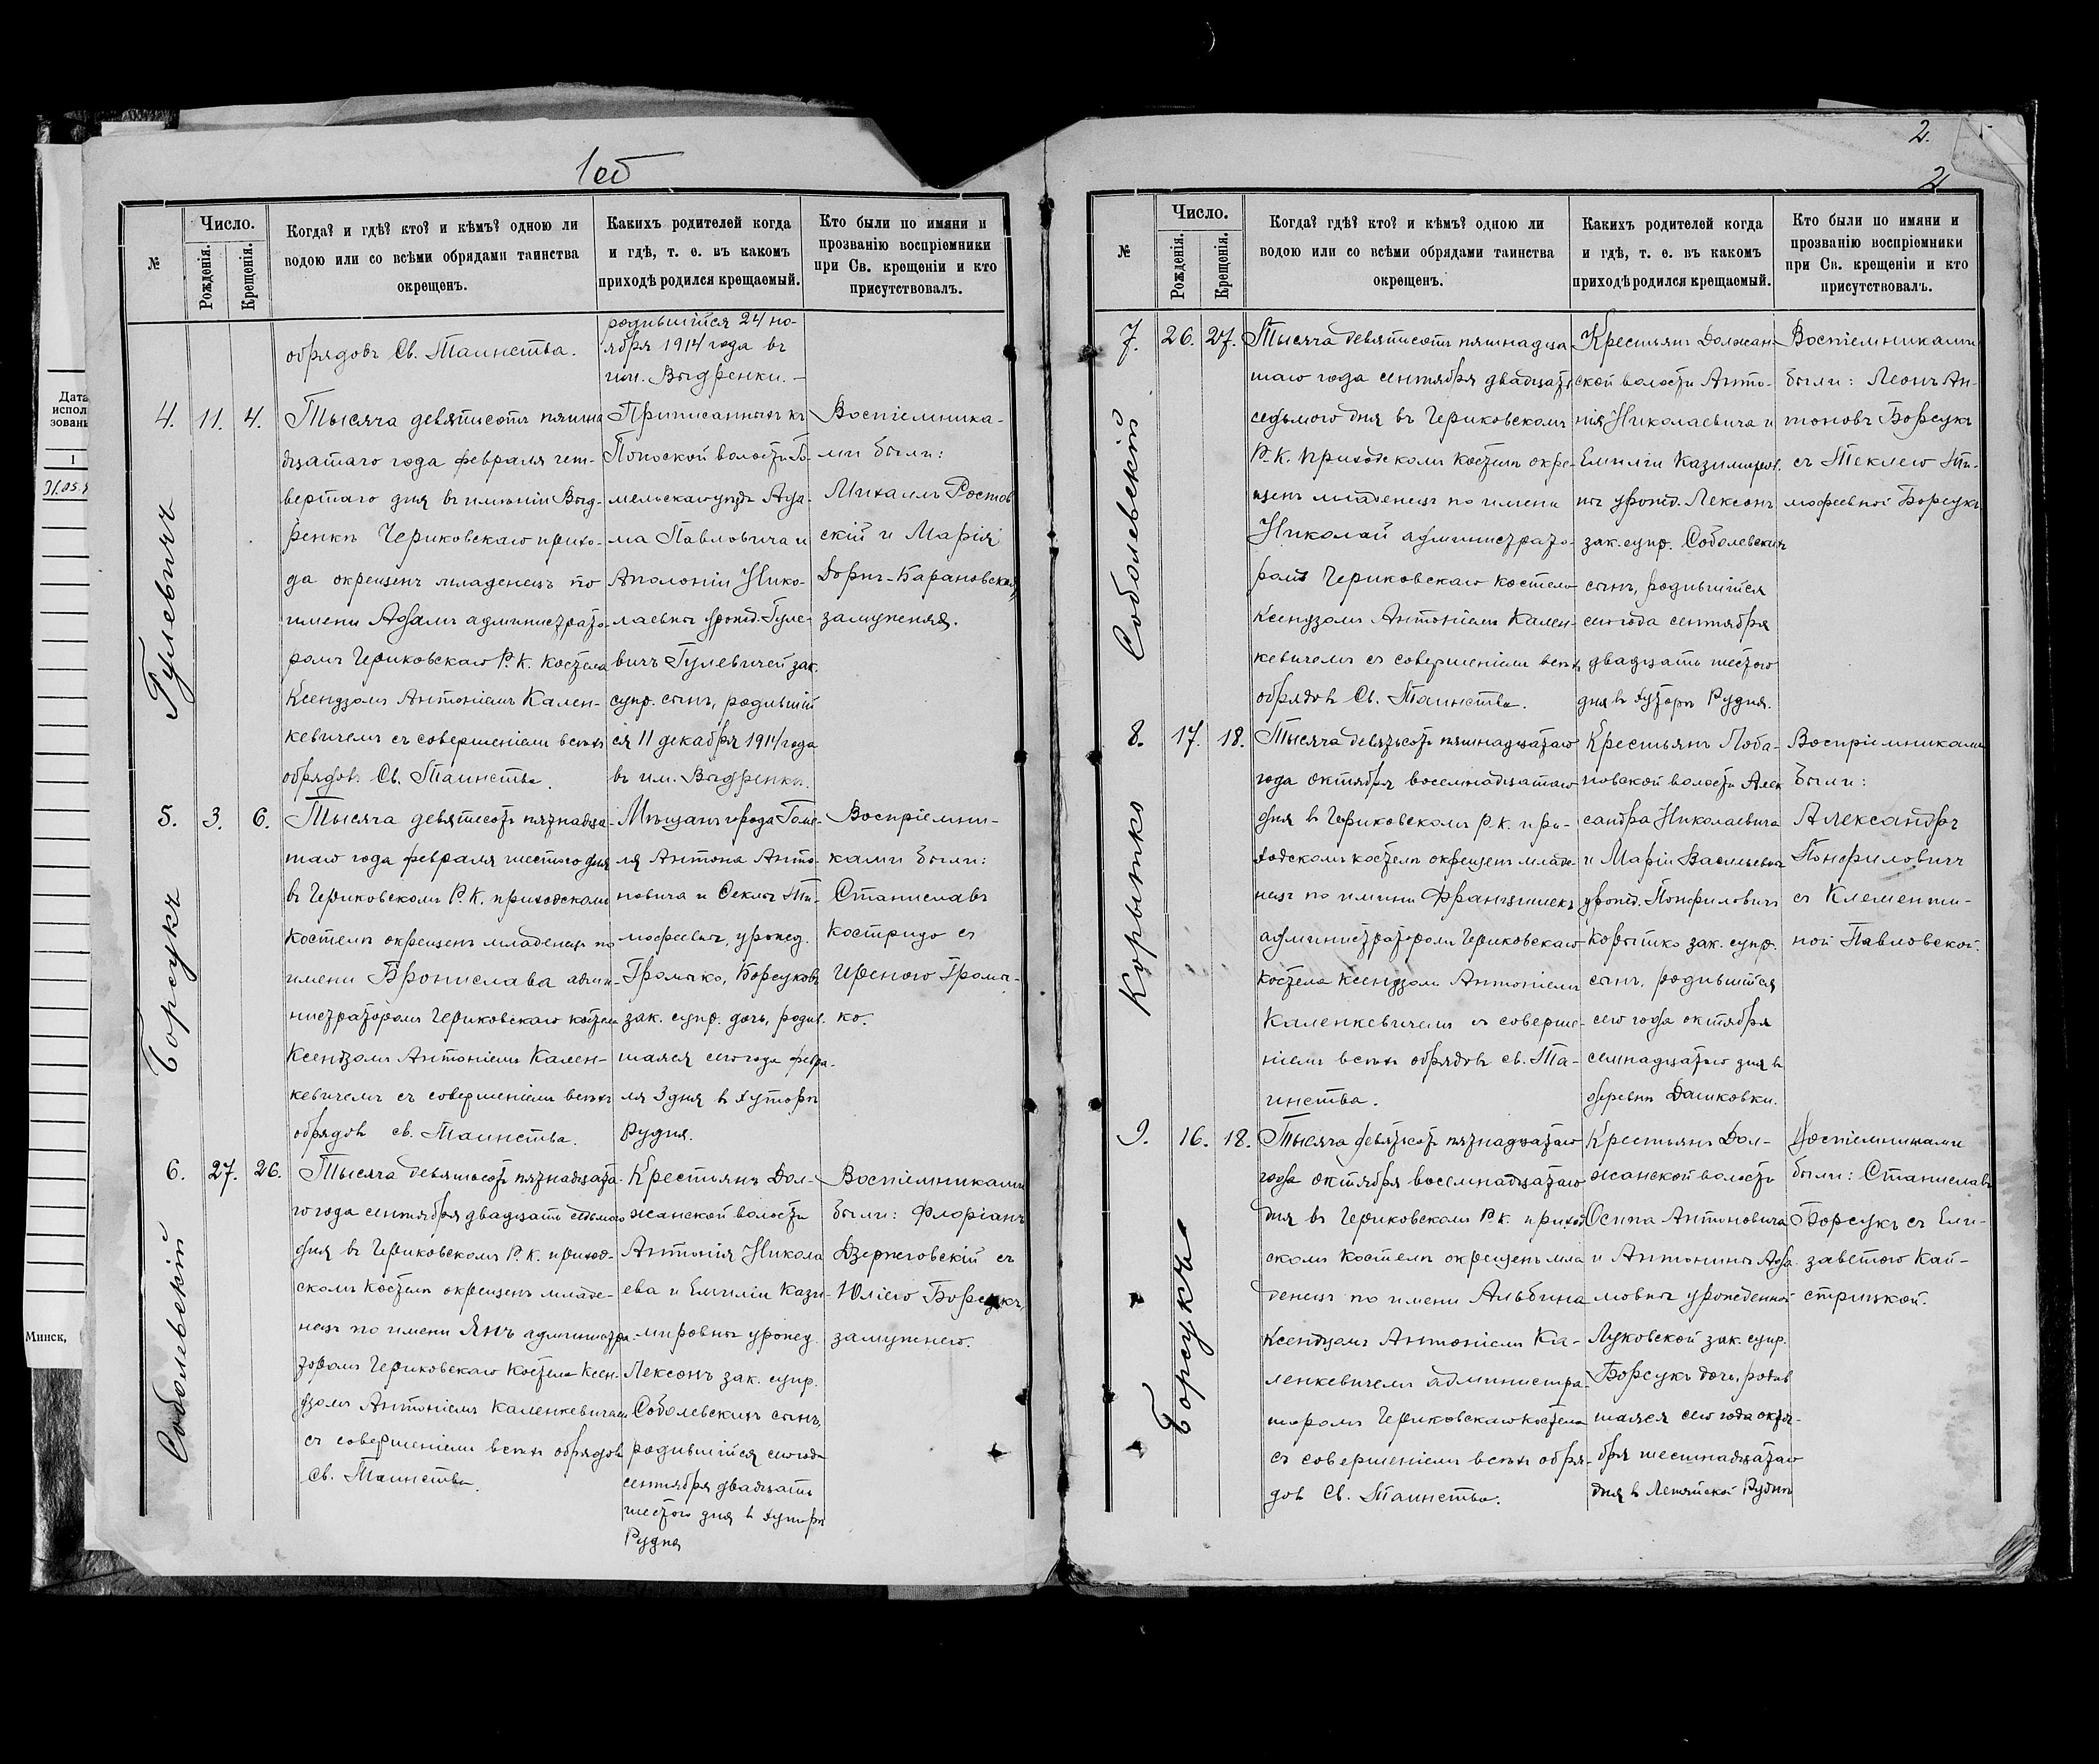 1об
№
Число.
Рожденія.
Крещенія.
Когда? и гдѣ? кто? и кѣмъ? одною ли
водою или со всѣми обрядами таинства
окрещенъ.
Какихъ родителей когда
и гдѣ, т. е. въ какомъ
приходѣ родился крещаемый.
Кто были по имяни и
прозванію воспріемники
при Св. крещеніи и кто
присутствовалъ.
обрядовъ Св. Таинства.
родившійся 24 но-
ября 1914 года въ
им. Выдренки. —
Гулевичъ
4. 11. 4.
Тысяча девятьсотъ пятна
дцатаго года февраля чет-
вертаго дня въ имѣніи Выд-
ренкѣ Чериковскаго прихо-
да окрещенъ младенецъ по
имени Адамъ администрато-
ромъ Чериковскаго Р. К. Костела
Ксендзомъ Антоніемъ Кален-
кевичемъ съ совершеніемъ всѣхъ
обрядовъ Св. Таинства.
Приписанныхъ къ
волости Го-
мельскаго уѣзда Ада-
ма Павловича и
Аполоніи Нико-
лаевны урожд. Гуле-
вичъ Гулевичей зак.
супр. сынъ, родивший
ся 11 декабря 1914 года
въ им. Выдренки.
Воспіемника-
ми были:
Михаилъ Ростов
скій и Марія
Барановская
замужняя.
Борсукъ
5. 3. 6.
Тысяча девятьсотъ пятнадца-
таго года февраля шестого дня
въ Чериковскомъ Р. К. приходскомъ
костелѣ окрещенъ младенецъ по
имени Бронислава адми-
нистраторомъ Чериковскаго костела
Ксендзомъ Антоніемъ Кален-
кевичемъ съ совершеніемъ всѣхъ
обрядовъ св. Таинства.
Мѣщанъ города Гоме-
ля Антона Анто-
новича и Феклы Ти-
мофеевны, урожд.
Громыко, Борсуковъ
зак. супр. дочь, родив.
шаяся сего года февра-
ля 3 дня въ хуторѣ
Рудня.
Воспріемни-
ками были:
Станиславъ
Костридо съ
Иреною Громы-
ко.
Соболевскій
6. 27. 26.
Тысяча девятьсотъ пятнадцата-
го года сентября двадцать седьмого
дня въ Чериковскомъ Р. К. приход-
скомъ Костелѣ окрещенъ младе-
нецъ по имени Янъ администра-
торомъ Чериковскаго Костела Ксен-
дзомъ Антоніемъ Каленкевичемъ
съ совершеніемъ всѣхъ обрядовъ
Св. Таинства.
Крестьянъ Дол-
жанской волости
Антонія Никола
ева и Емиліи Кази-
мировны урожд.
Лексонъ зак. супр.
Соболевскихъ сынъ,
родившійся сего года
сентября двадцать
шестого дня въ хуторѣ
Рудня
Воспіемниками
были: Флоріанъ
Дзерноговскій съ
Юліею Борсукъ,
замужнею.
2.
2
№
Число.
Рожденія.
Крещенія.
Когда? гдѣ? кто? и кѣмъ? одною ли
водою или со всѣми обрядами таинства
окрещенъ.
Какихъ родителей когда
и гдѣ, т. е. въ какомъ
приходѣ родился крещаемый.
Кто были по имяни и
прозванію воспріемники
при Св. крещеніи и кто
присутствовалъ.
Соболевскій
7. 26. 27.
Тысяча девятисотъ пятнадца-
таго года сентября двадцать
седьмого дня въ Чериковскомъ
Р. К. приходскомъ костелѣ окре-
щенъ младенецъ по имени
Николай администрато-
ромъ Чериковскаго костела
Ксендзомъ Антоніемъ Кален-
кевичемъ съ совершеніемъ всѣхъ
обрядовъ Св. Таинства.
Крестьянъ Должан-
ской волости Анто-
нія Николаевича и
Емиліи Казимиров.
ны урожд. Лексонъ
зак. супр. Соболевскихъ
сынъ, родившійся
сего года сентября
двадцать шестого
дня въ хуторѣ Рудня.
Воспіемниками
были: Леонъ Ан-
тоновъ Борсукъ
съ Теклею Ти-
мофеевной Борсукъ
Корытко
8. 17. 18.
Тысяча девятьсотъ пятнадцатаго
года октября восемнадцатаго
дня въ Чериковскомъ Р. К. при-
ходскомъ костелѣ окрещенъ младе-
нецъ по имени Францишекъ
администраторомъ Чериковскаго
Костела Ксендзомъ Антоніемъ
Каленкевичемъ съ соверше-
ніемъ всѣхъ обрядовъ св. Та-
инства.
Крестьянъ Лоба-
новской волости Алек
сандра Николаевича
и Маріи Васильевны
урожд. Понфиловичъ
Корытко зак. супр.
сынъ, родившійся
сего года октября
семнадцатаго дня въ
деревнѣ Дашковки.
Воспріемниками
были:
Александръ
Понфиловичъ
съ Клементи-
ной Павловской.
Борсукъ
9. 16. 18.
Тысяча девятьсотъ пятнадцатаго
года октября восемнадцатаго
дня въ Чериковскомъ Р. К. приход
скомъ Костелѣ окрещенъ мла
денецъ по имени Альбина
Ксендзомъ Антоніемъ Ка-
ленкевичемъ администра-
торомъ Чериковскаго костела
съ совершеніемъ всѣхъ обря-
довъ Св. Таинства.
Крестьянъ Дол-
жанской волости
Осипа Антоновича
и Антонины Ада
мовны урожденной
Луковской зак. супр.
Борсукъ дочь, родив
шаяся сего года октя-
бря шестнадцатаго
дня въ Рудни
Воспіемниками
были: Станиславъ
Борсукъ съ Ели-
заветою Кай-
стрицкой.
Дата
испол
зован
1
31.05.
Минск,